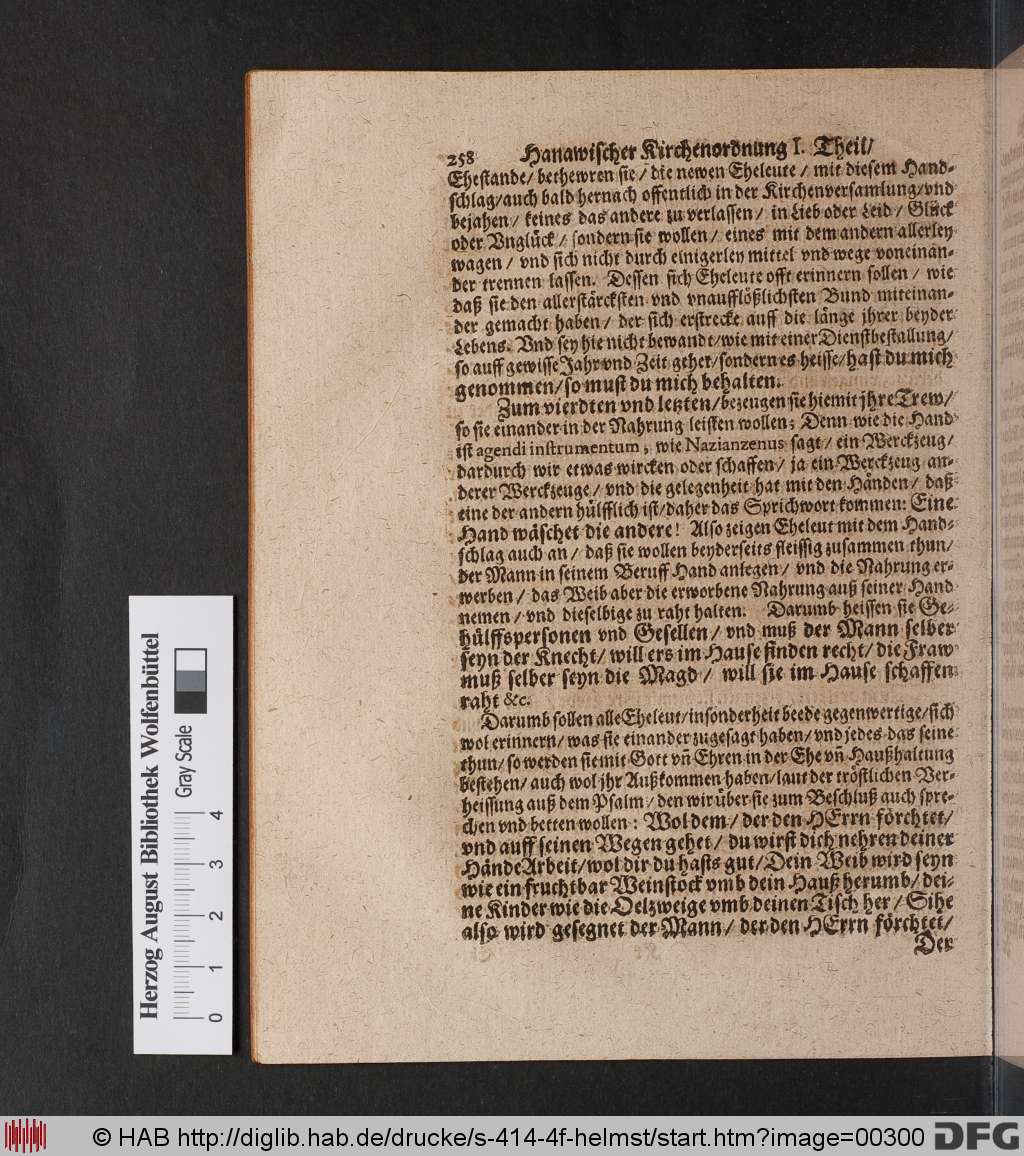 258 Hanawischer Kirchenordnung I. Theil/
Ehestande/ bethewren sie/ die newen Eheleute/ mit diesem Hand-
schlag/ auch bald hernach offentlich in der Kirchenversamlung/ vnd
bejahen/ keines das andere zu verlassen/ in Lieb oder Leid/ Glück
oder Vnglück/ sondern sie wollen/ eines mit dem andern allerley
wagen/ vnd sich nicht durch einigerley mittel vnd wege voneinan-
der trennen lassen. Dessen sich Eheleute offt erinnern sollen/ wie
daß sie den allerstärcksten vnd vnaufflößlichsten Bund miteinan-
der gemacht haben/ der sich erstrecke auff die länge jhrer beyder
Lebens. Vnd sey hie nicht bewandt/ wie mit einer Dienstbestallung/
so auff gewisse Jahr vnd Zeit gehet/ sondern es heisse/ hast du mich
genommen/ so must du mich behalten.
Zum vierdten vnd letzten/ bezeugen sie hiemit jhre Trew/
so sie einander in der Nahrung leisten wollen; Denn wie die Hand
ist agendi instrumentum, wie Nazianzenus sagt/ ein Werckzeug/
dardurch wir etwas wircken oder schaffen/ ja ein Werckzeug an-
derer Werckzeuge/ vnd die gelegenheit hat mit den Händen/ daß
eine der andern hülfflich ist/ daher das Sprichwort kommen: Eine
Hand wäschet die andere! Also zeigen Eheleut mit dem Hand-
schlag auch an/ daß sie wollen beyderseits fleissig zusammen thun/
der Mann in seinem Beruff Hand anlegen/ vnd die Nahrung er-
werben/ das Weib aber die erworbene Nahrung auß seiner Hand
nemen/ vnd dieselbige zu raht halten. Darumb heissen sie Ge-
hülffspersonen vnd Gesellen/ vnd muß der Mann selber
seyn der Knecht/ will ers im Hause finden recht/ die Fraw
muß selber seyn die Magd/ will sie im Hause schaffen
raht &c.
Darumb sollen alle Eheleut/ insonderheit beede gegenwertige/ sich
wol erinnern/ was sie einander zugesagt haben/ vnd jedes das seine
thun/ so werden sie mit Gott vñ Ehren in der Ehe vñ Haußhaltung
bestehen/ auch wol jhr Außkommen haben/ laut der tröstlichen Ver-
heissung auß dem Psalm/ den wir über sie zum Beschluß auch spre-
chen vnd betten wollen: Wol dem/ der den HErrn förchtet/
vnd auff seinen Wegen gehet/ du wirst dich nehren deiner
Hände Arbeit/ wol dir du hasts gut/ Dein Weib wird seyn
wie ein fruchtbar Weinstöck vmb dein Hauß herumb/ dei-
ne Kinder wie die Oelzweige vmb deinen Tisch her/ Sihe
also wird gesegnet der Mann/ der den HErrn förchtet/
Der
Herzog August Bibliothek Wolfenbüttel
Gray Scale
0 1 2 3 4
© HAB http://diglib.hab.de/drucke/s-414-4f-helmst/start.htm?image=00300 DFG